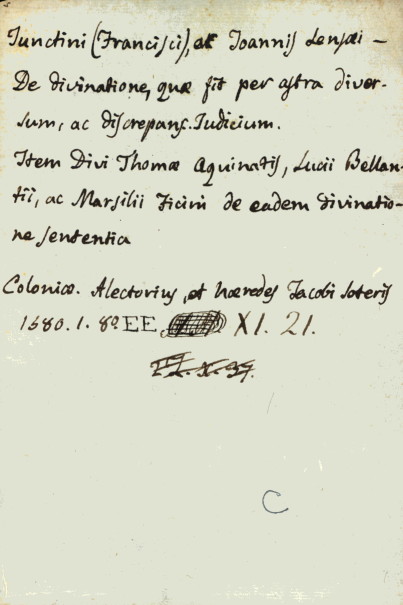 Junctini (Francisci), et Joannis Lensæi –
De divinatione, quæ fit per astra diver-
sum, ac discrepans Judicium.
Item Divi Thomæ Aquinatis, Lucii Bellan-
tii, ac Marsilii Ficini de eadem divinatio-
ne sententia
Coloniæ. Alectorius, et hæredes Jacobi Soteris
1580. 1. 8º EE XI. 21.
C